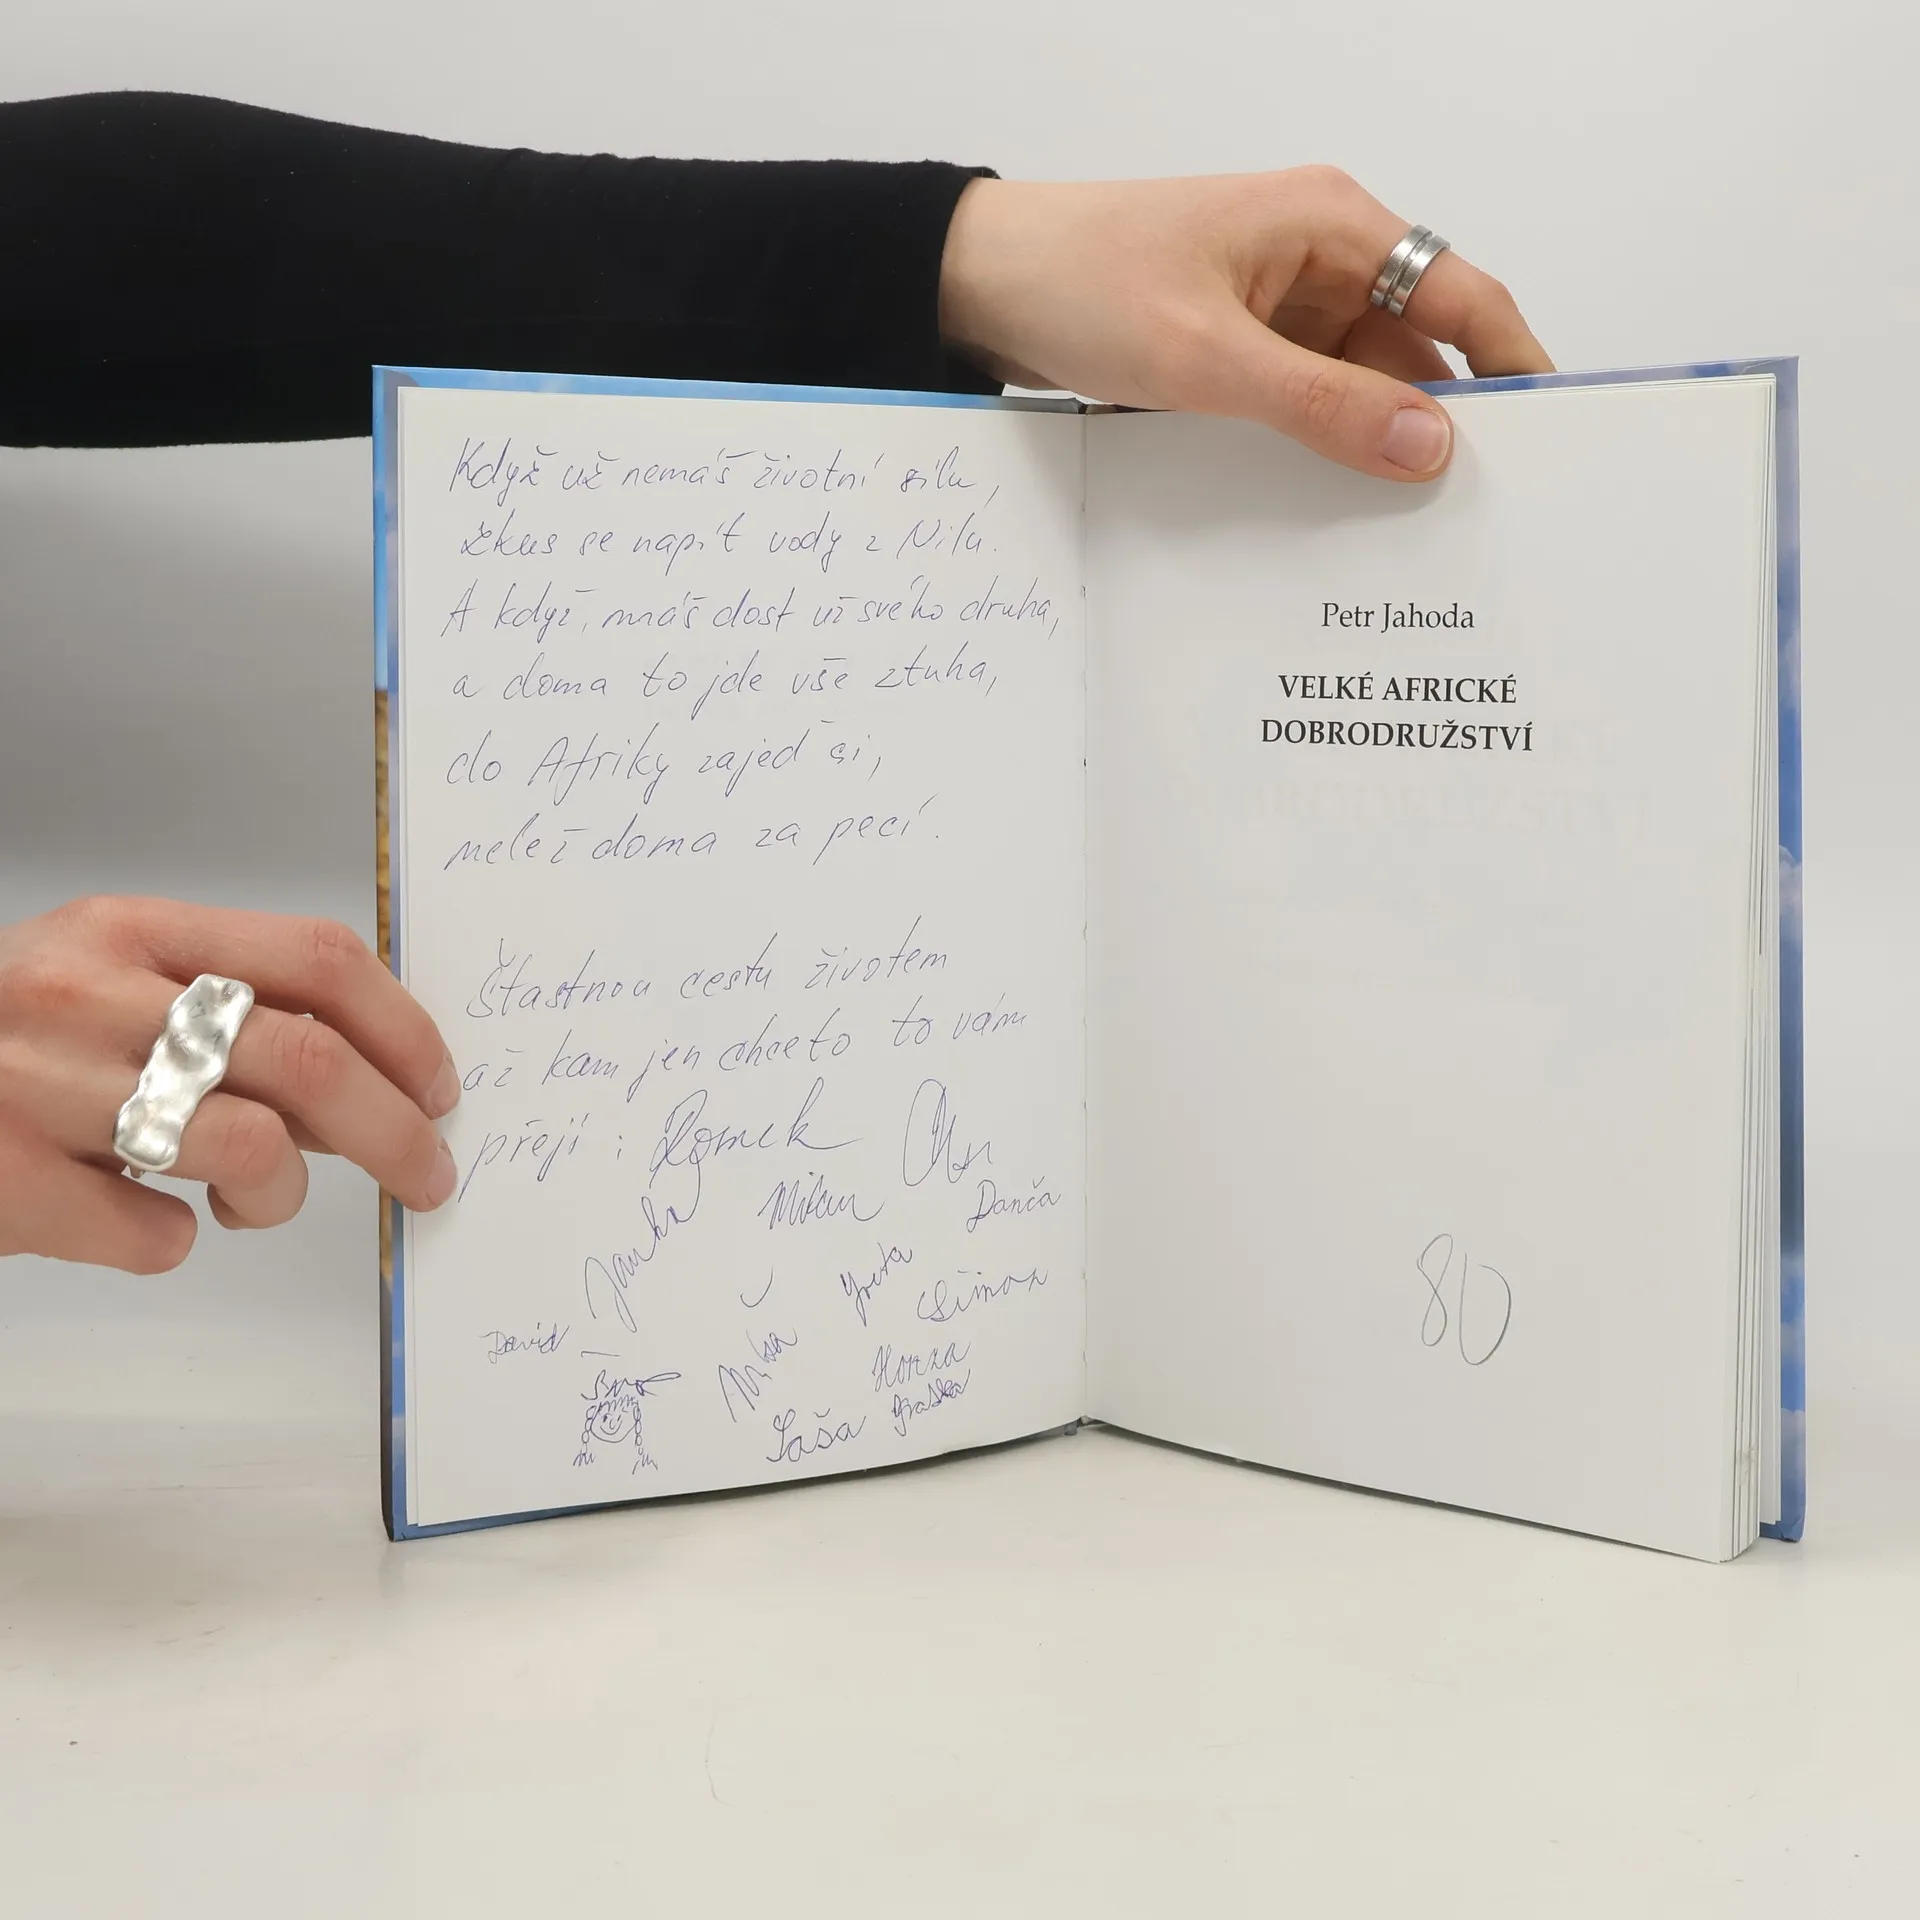 Když už nemáš životní sílu,
zkus se napít vody z Nilu.
A když, máš dost už svého druha,
a doma to jde vše ztuha,
do Afriky zajeď si,
nelež doma za pecí.
Šťastnou cestu životem
až kam jen chceto to vám
přejí : Romek
Milan
Danča
Janka
Yveta
Šimon
David
Míša
Honza
Saša
Petr Jahoda
VELKÉ AFRICKÉ
DOBRODRUŽSTVÍ
80